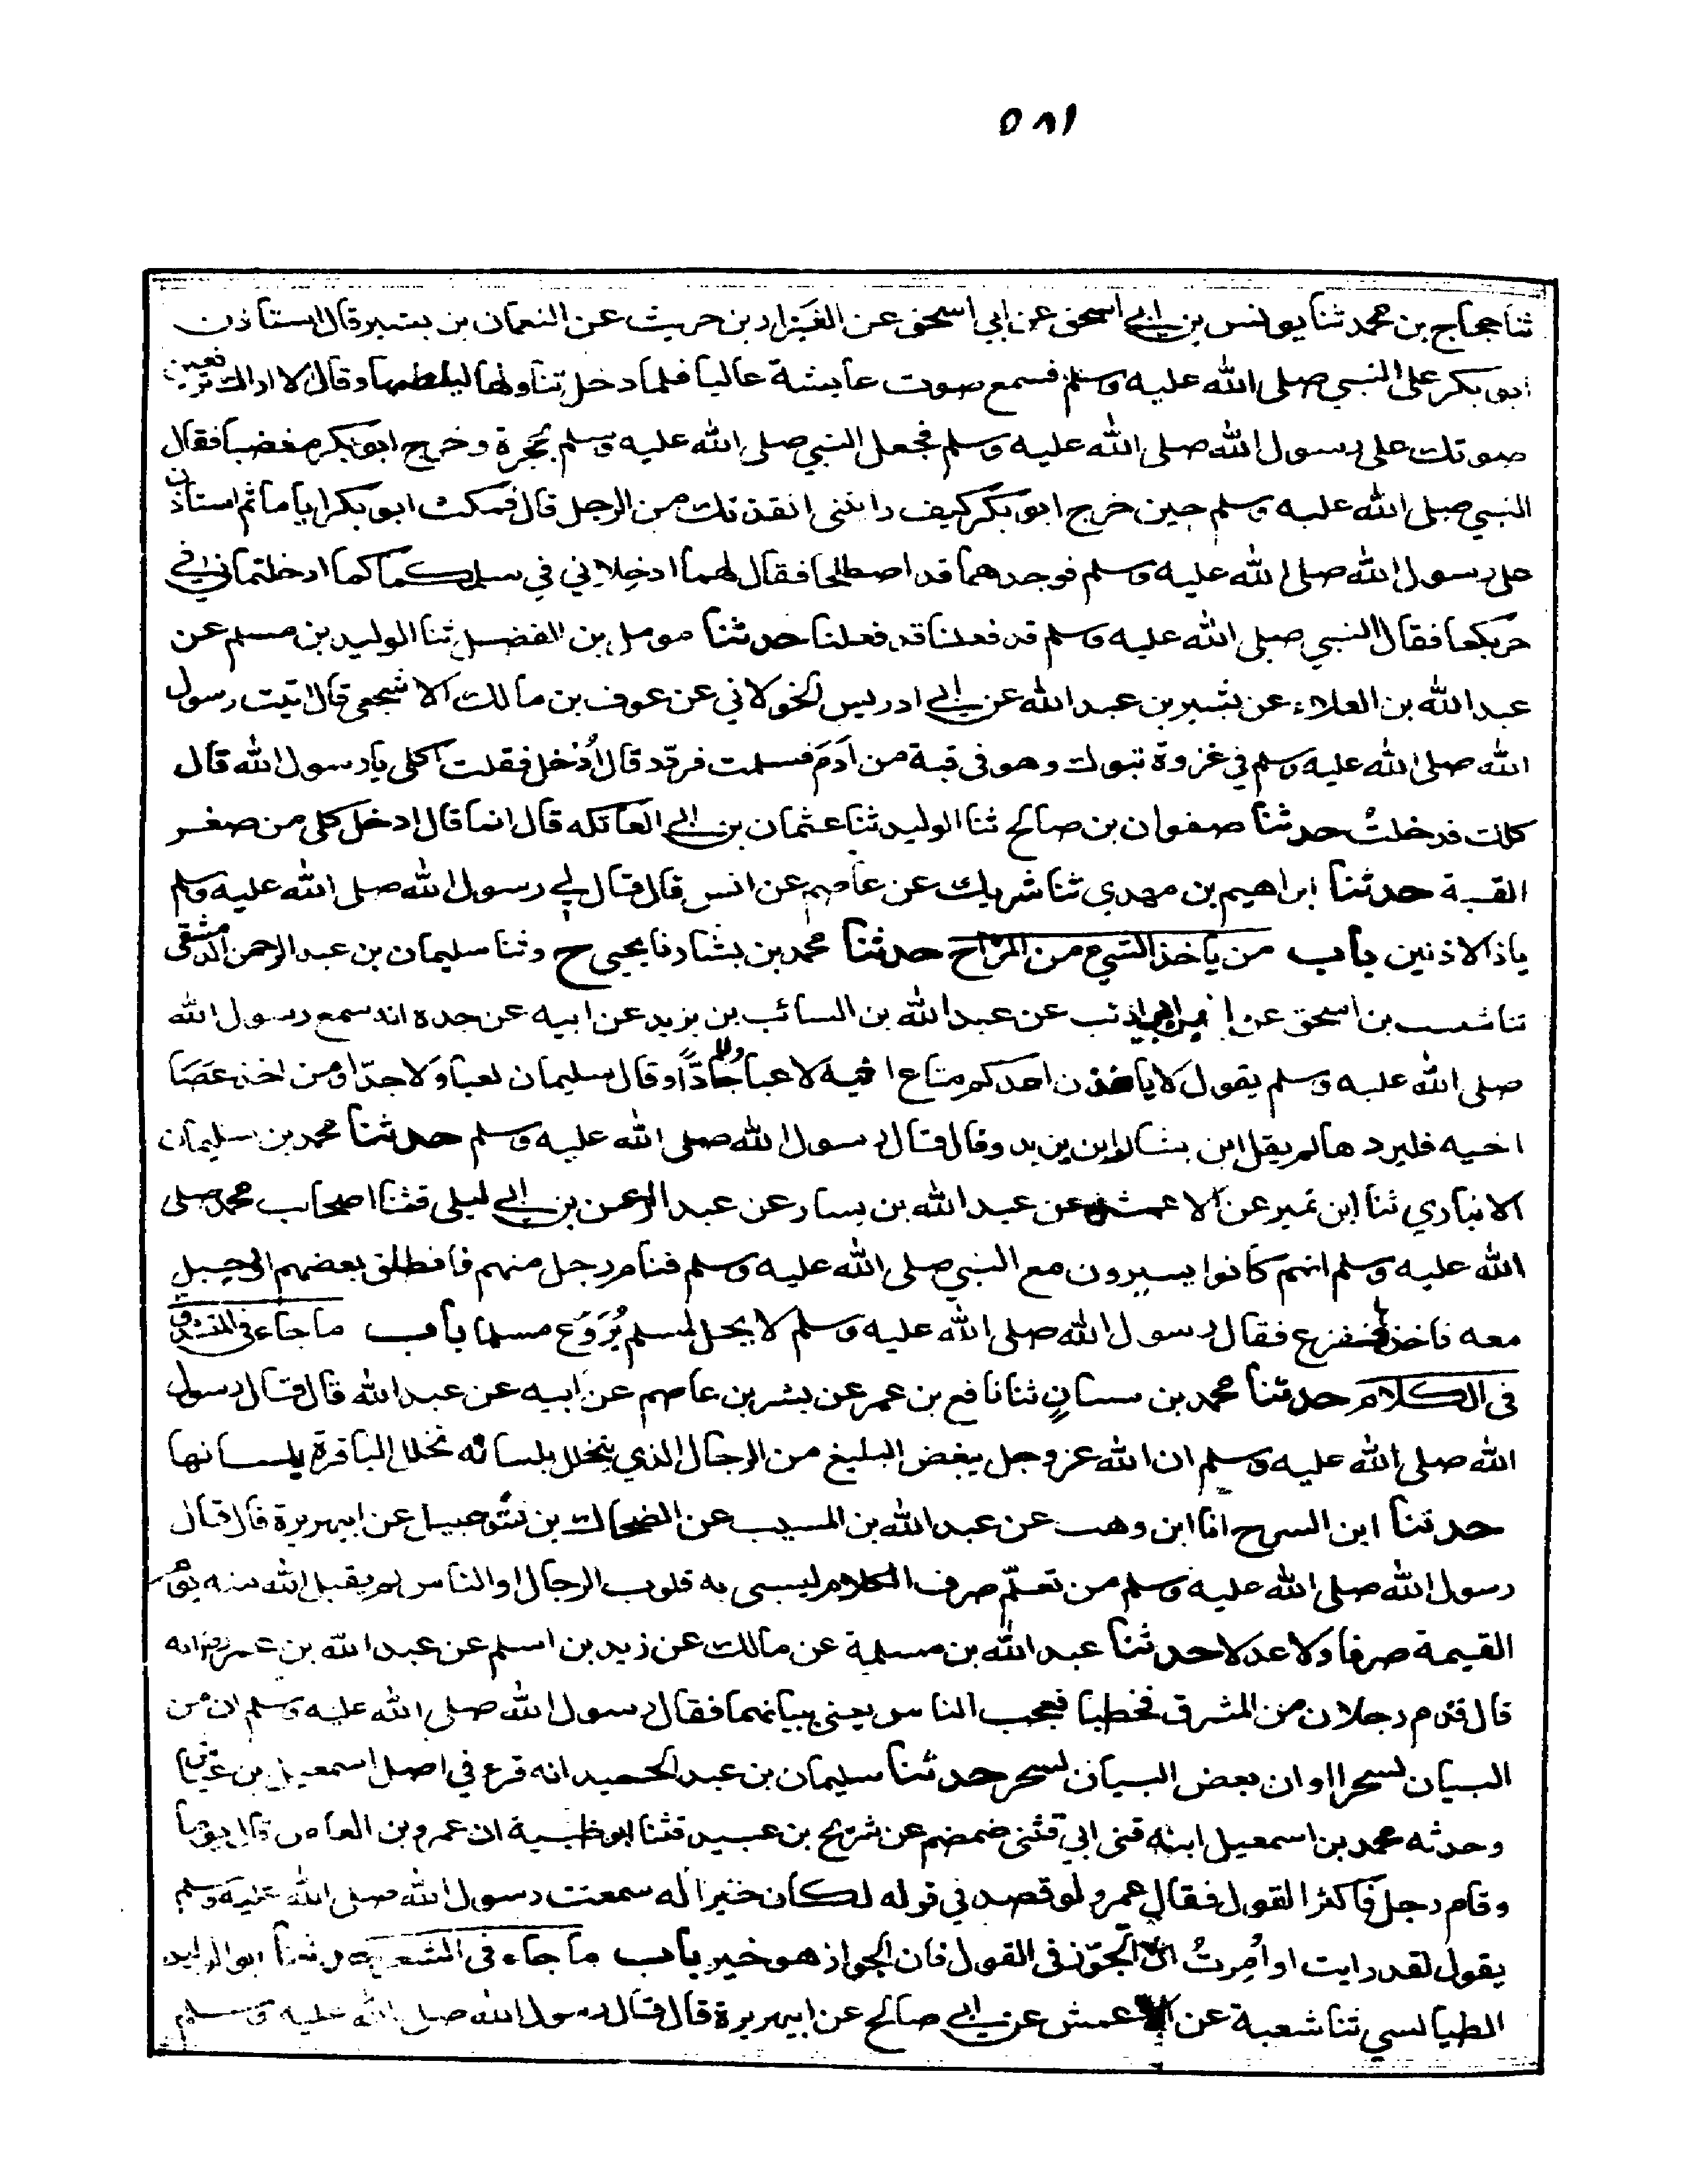 ٥٨١
ثنا حجاج بن محمد ثنا يونس بن ابي اسحق عن ابي اسحق عن العَيزار بن حريث عن النعمان بن بشير قال استاذن
ابو بكر على النبي صلى الله عليه وسلم فسمع صوت عايشة عاليا فلما دخل تناولها ليلطمها وقال لا اراك ترفعين
صوتك على رسول الله صلى الله عليه وسلم فجعل النبي صلى الله عليه وسلم يحجزه وخرج ابو بكر مغضبا فقال
النبي صلى الله عليه وسلم حين خرج ابو بكر كيف رايتني انقذتك من الرجل قال فمكث ابو بكر اياما ثم استاذن
على رسول الله صلى الله عليه وسلم فوجدهما قد اصطلحا فقال لهما ادخلاني في سلمكما كما ادخلتماني في
حربكما فقال النبي صلى الله عليه وسلم قد فعلنا قد فعلنا حدثنا مومل بن الفضل ثنا الوليد بن مسلم عن
عبد الله بن العلاء عن بشير بن عبد الله عن ابي ادريس الخولاني عن عوف بن مالك الاشجعي قال اتيت رسول
الله صلى الله عليه وسلم في غزوة تبوك وهو في قبة من اَدَم فسلمت فردّ قال اُدخل فقلت اكلى يا رسول الله قال
كلك فدخلتُ حدثنا صفوان بن صالح ثنا الوليد ثنا عثمان بن ابي العاتكه قال انما قال ادخل كلى من صغر
القبة حدثنا ابراهيم بن مهدي ثنا شريك عن عاصم عن انس قال قال لي رسول الله صلى الله عليه وسلم
ياذا الاذنين باب من ياخذ الشيء من المزاح حدثنا محمد بن بشار نا يحيى ح وثنا سليمان بن عبد الرحمن الدمشقي
ثنا شعيب بن اسحق عن ابن ابي ذئب عن عبد الله بن السائب بن يزيد عن ابيه عن جده انه سمع رسول الله
صلى الله عليه وسلم يقول لا ياخذن احدكم متاع اخيه لاعبا ولا جادّاً وقال سليمان لعبا ولا جدّا ومن اخذ عَصَا
اخيه فليردها لم يقل ابن بشار ابن يزيد وقال قال رسول الله صلى الله عليه وسلم حدثنا محمد بن سليمان
الانباري ثنا ابن نمير عن الاعمش عن عبد الله بن يسار عن عبد الرحمن بن ابي ليلى قثنا اصحاب محمد صلى
الله عليه وسلم انهم كانوا يسيرون مع النبي صلى الله عليه وسلم فنام رجل منهم فانطلق بعضهم الى حبل
معه فاخذه ففزع فقال رسول الله صلى الله عليه وسلم لا يحل لمسلم يُرَوّع مسلما باب ما جاء في المتشدق
في الكلام حدثنا محمد بن سنانٍ ثنا نافع بن عمر عن بشر بن عاصم عن ابيه عن عبد الله قال قال رسول
الله صلى الله عليه وسلم ان الله عز وجل يبغض البليغ من الرجال الذي يتخلل بلسانه تخلل الباقرة بلسانها
حدثنا ابن السرح انا ابن وهب عن عبد الله بن المسيب عن الضحاك بن شرحبيل عن ابي هريرة قال قال
رسول الله صلى الله عليه وسلم من تعلّم صرف الكلام ليسبي به قلوب الرجال او الناس لم يقبل الله منه يوم
القيمة صرفا ولا عدلا حدثنا عبد الله بن مسلمة عن مالك عن زيد بن اسلم عن عبد الله بن عمر انه
قال قدم رجلان من المشرق فخطبا فعجب الناس يعني ببيانهما فقال رسول الله صلى الله عليه وسلم ان من
البيان لسحرا او ان بعض البيان لسحر حدثنا سليمان بن عبد الحميد انه قرء في اصل اسمعيل بن عياش
وحدثه محمد بن اسمعيل ابنه قثنى ابي قثنى ضمضم عن شريح بن عبيد قثنا ابو ظبية ان عمرو بن العاص قال يوما
وقام رجل فاكثر القول فقال عمرو لو قصد في قوله لكان خيرا له سمعت رسول الله صلى الله عليه وسلم
يقول لقد رايت او اُمِرتُ ان اتجوّز في القول فان الجواز هو خير باب ما جاء في الشعر حدثنا ابو الوليد
الطيالسي ثنا شعبة عن الاعمش عن ابي صالح عن ابي هريرة قال قال رسول الله صلى الله عليه وسلم